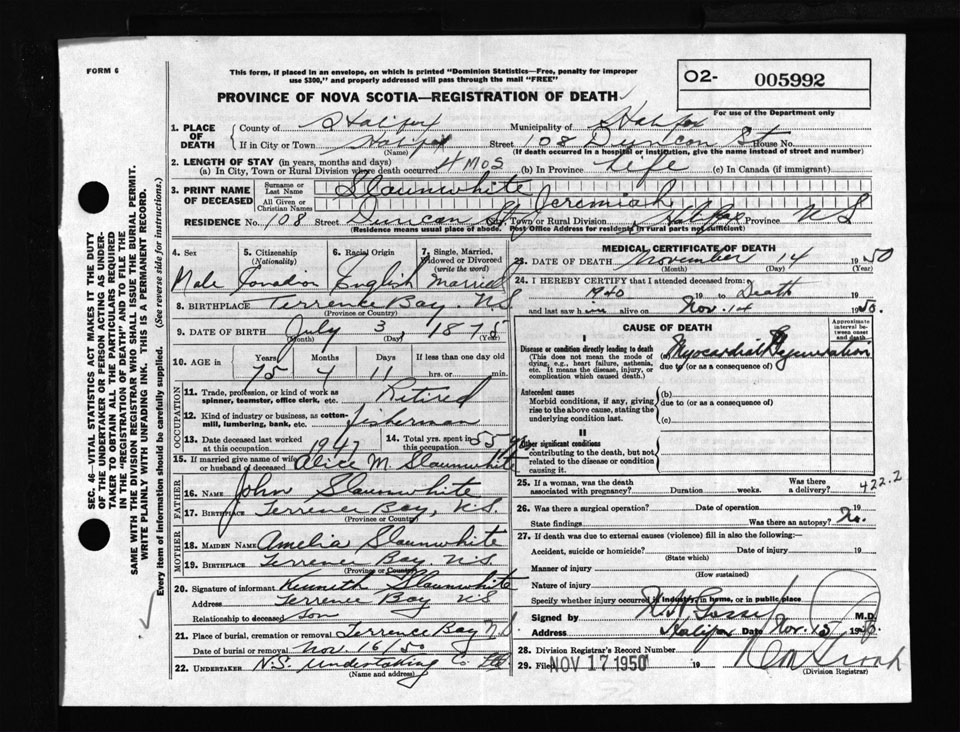 FORM 6
This form, if placed in an envelope, on which is printed "Dominion Statistics—Free, penalty for improper
use $300," and properly addressed will pass through the mail "FREE"
O2- 005992
PROVINCE OF NOVA SCOTIA—REGISTRATION OF DEATH
For use of the Department only
1. PLACE OF DEATH
County of Halifax Municipality of Halifax
If in City or Town Halifax Street 108 Duncan St House No.
(Name) (If death occurred in a hospital or institution, give the name instead of street and number)
2. LENGTH OF STAY (in years, months and days)
(a) In City, Town or Rural Division where death occurred 4 MOS (b) In Province Life (c) In Canada (if immigrant)
3. PRINT NAME OF DECEASED
Surname or Last Name Slaunwhite
All Given or Christian Names Jeremiah
RESIDENCE No. 108 Street Duncan St City, Town or Rural Division Halifax Province N S
(Residence means usual place of abode. Post Office address for residents in rural parts not sufficient)
4. Sex 5. Citizenship (Nationality) 6. Racial Origin 7. Single, Married, Widowed or Divorced (write the word)
Male Canadian English Married
8. BIRTHPLACE Terrence Bay N.S.
(Province or Country)
9. DATE OF BIRTH July 3, 1875
(Month) (Day) (Year)
10. AGE in Years Months Days If less than one day old
75 4 11 hrs. or min.
OCCUPATION
11. Trade, profession, or kind of work as spinner, teamster, office clerk, etc. Retired
12. Kind of industry or business, as cotton-mill, lumbering, bank, etc. fisherman
13. Date deceased last worked at this occupation 1947 14. Total yrs. spent in 55 yrs
15. If married give name of wife or husband of deceased Alice M. Slaunwhite
FATHER
16. NAME John Slaunwhite
17. BIRTHPLACE Terrence Bay, N.S.
(Province or Country)
MOTHER
18. MAIDEN NAME Amelia Slaunwhite
19. BIRTHPLACE Terrence Bay N.S.
(Province or Country)
20. Signature of informant Kenneth Slaunwhite
Address Terrence Bay N.S
Relationship to deceased Son
21. Place of burial, cremation or removal Terrence Bay N.S.
Date of burial or removal Nov. 16/50
22. UNDERTAKER N.S. Undertaking Co Ltd.
(Name and address)
MEDICAL CERTIFICATE OF DEATH
23. DATE OF DEATH November 14 1950
(Month) (Day) (Year)
24. I HEREBY CERTIFY that I attended deceased from:
19 to Death
and last saw him alive on Nov. 14 1950.
CAUSE OF DEATH
Approximate interval between onset and death
I
Disease or condition directly leading to death
(This does not mean the mode of dying, e.g., heart failure, asthenia, etc. It means the disease, injury, or complication which caused death.)
(a) Myocardial Degeneration
due to (or as a consequence of)
Antecedent causes
Morbid conditions, if any, giving rise to the above cause, stating the underlying condition last.
(b)
due to (or as a consequence of)
(c)
II
Other significant conditions
contributing to the death, but not related to the disease or condition causing it.
422.2
25. If a woman, was the death associated with pregnancy? Duration weeks. Was there a delivery?
26. Was there a surgical operation? Date of operation 19
State findings Was there an autopsy? No.
27. If death was due to external causes (violence) fill in also the following:
Accident, suicide or homicide? Date of injury 19
(State which)
Manner of injury
(How sustained)
Nature of injury
Specify whether injury occurred in industry, in home, or in public place
Signed by M.D.
Address Halifax Date Nov. 15 1950.
28. Division Registrar's Record Number
29. Filed NOV 17 1950 19
(Division Registrar)
SEC. 46—VITAL STATISTICS ACT MAKES IT THE DUTY
OF THE UNDERTAKER OR PERSON ACTING AS UNDER-
TAKER TO OBTAIN ALL THE PARTICULARS REQUIRED
IN THE "REGISTRATION OF DEATH" AND TO FILE THE
SAME WITH THE DIVISION REGISTRAR WHO SHALL ISSUE THE BURIAL PERMIT.
WRITE PLAINLY WITH UNFADING INK. THIS IS A PERMANENT RECORD.
Every item of information should be carefully supplied. (See reverse side for instructions.)